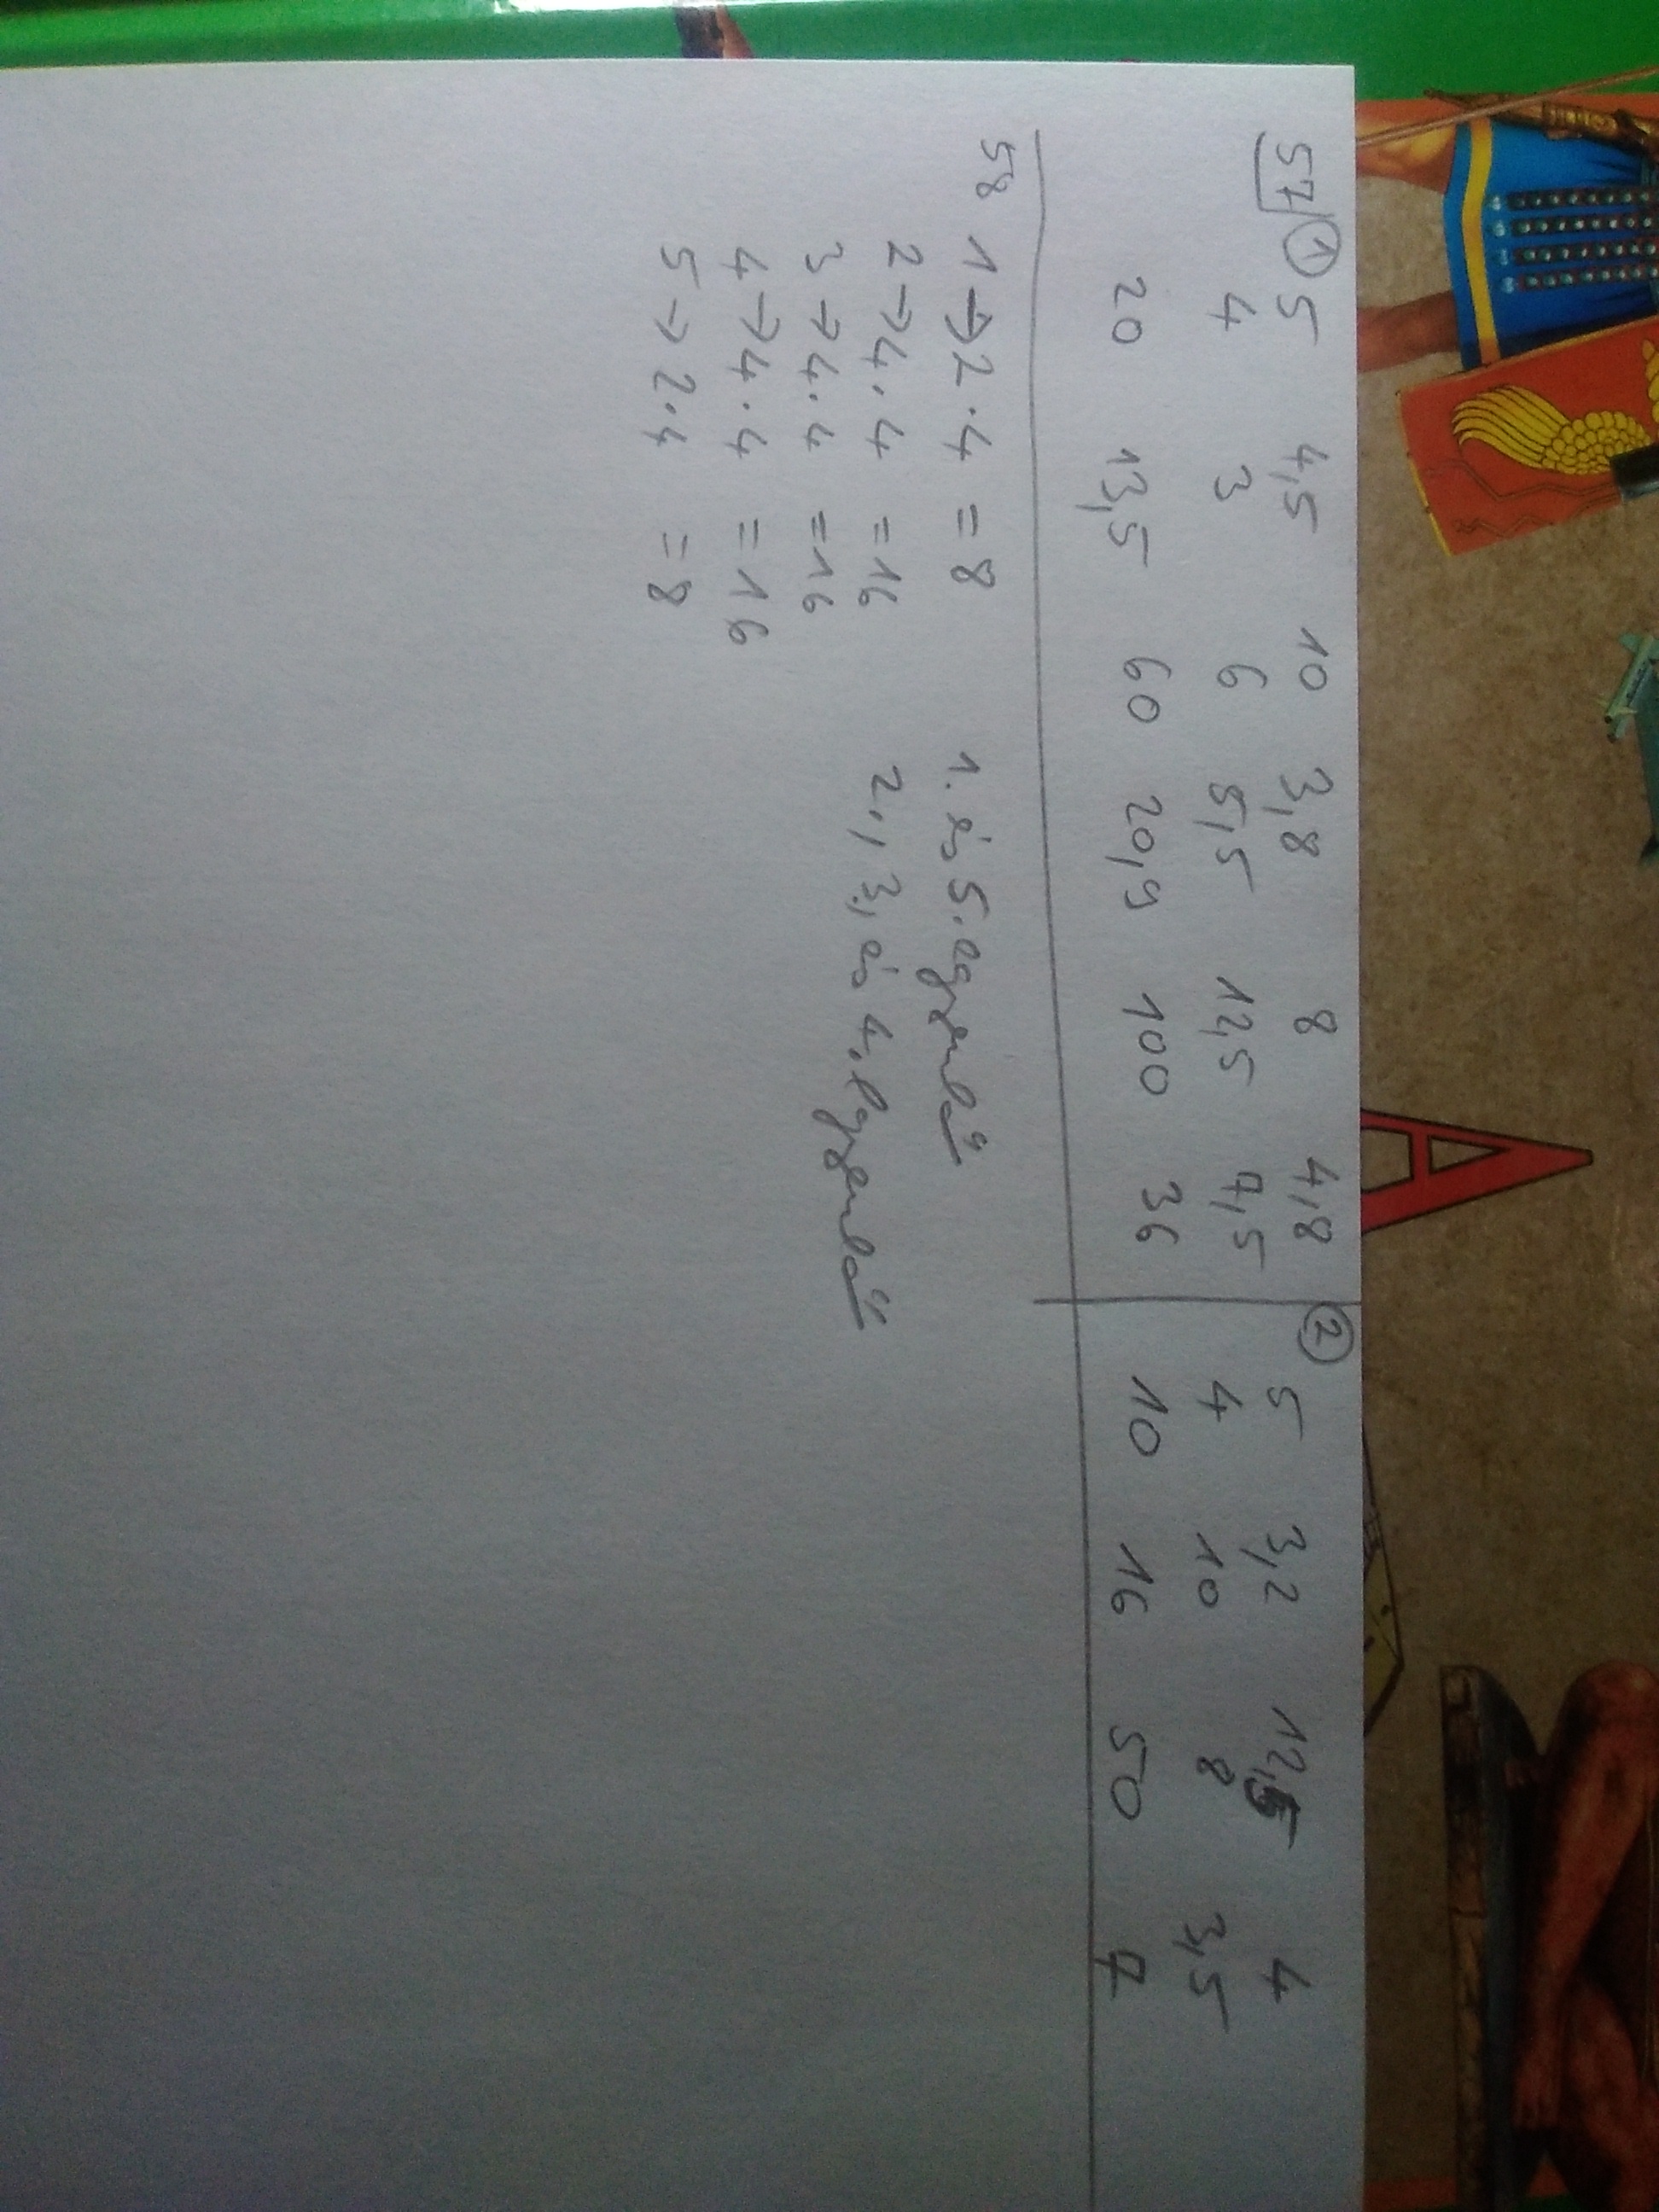 57/① 5 4,5 10 3,8 8 4,8
4 3 6 5,5 12,5 7,5
20 13,5 60 20,9 100 36
② 5 3,2 12,5 4
4 10 8 3,5
10 16 50 7
58 1→2·4 = 8 1. és 5. egyenlő
2→4·4 = 16 2., 3., és 4. egyenlő
3→4·4 = 16
4→4·4 = 16
5→2·4 = 8